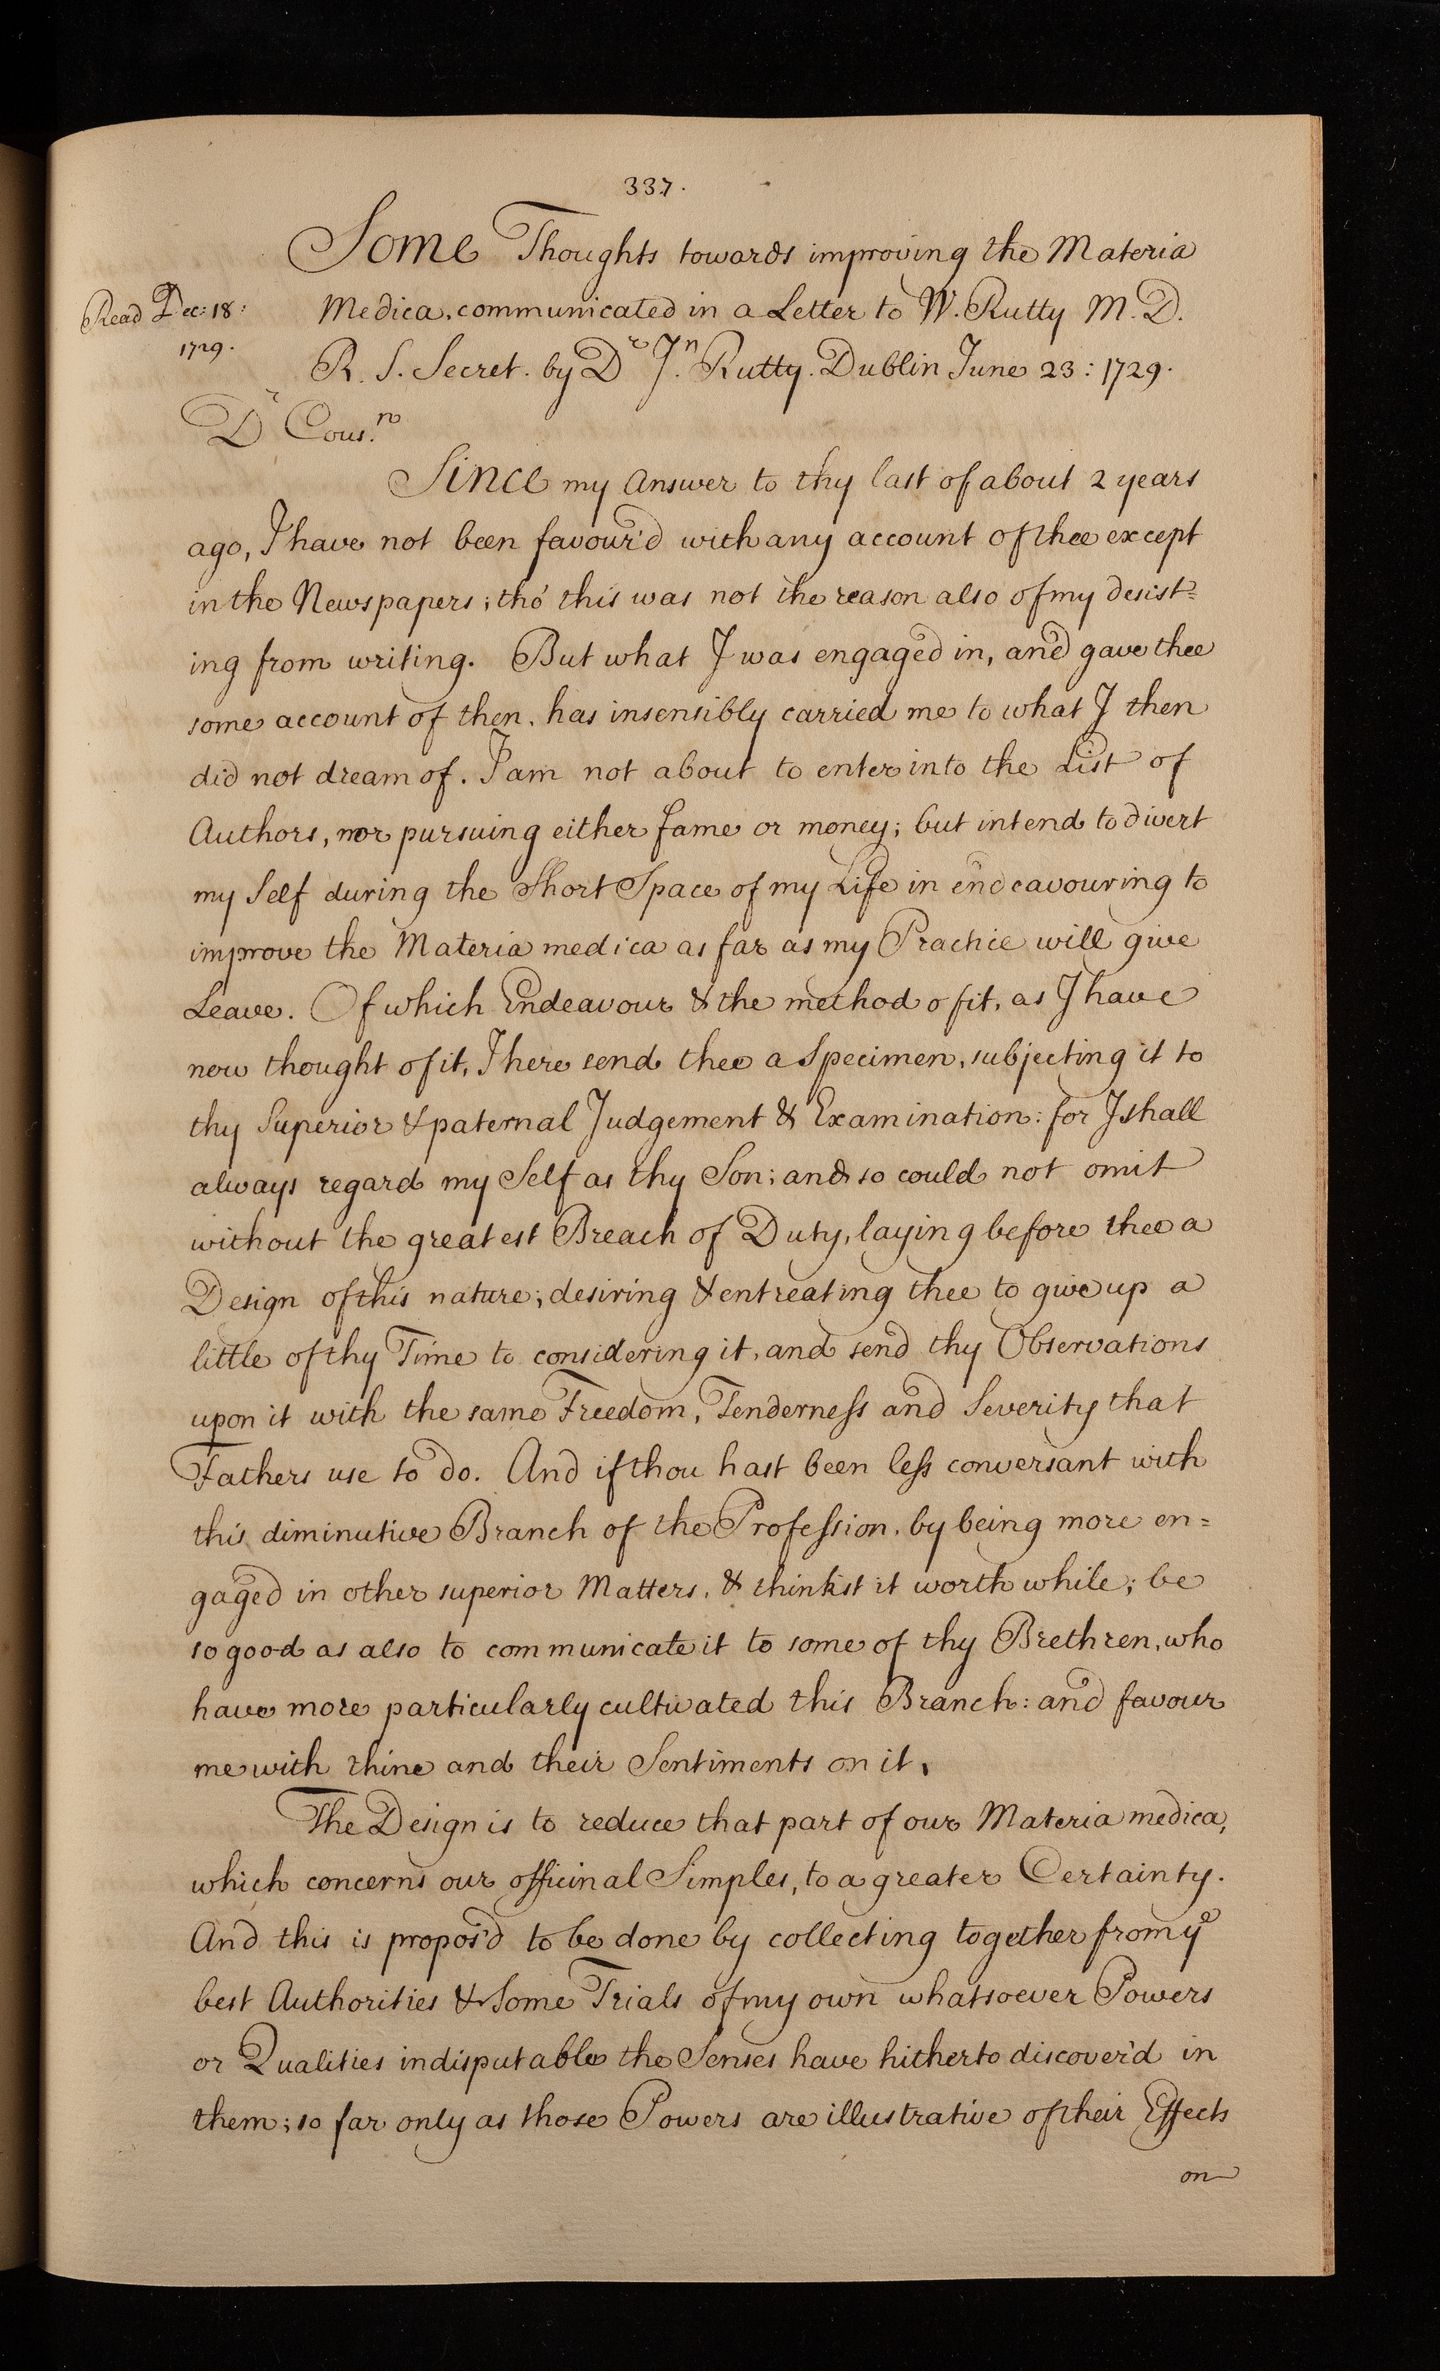 337.
Some Thoughts towards improving the Materia
Read Dec: 18:
1729.
Medica, communicated in a Letter to W. Rutty M. D.
R. S. Secret. by Dr Jn. Rutty. Dublin June 23: 1729.
Dr Cous.n
Since my Answer to thy last of about 2 years
ago, I have not been favour'd with any account of thee except
in the Newspapers; tho' this was not the reason also of my desist=
ing from writing. But what I was engaged in, and gave thee
some account of then, has insensibly carried me to what I then
did not dream of. I am not about to enter into the List of
Authors, nor pursuing either fame or money; but intend to divert
my Self during the Short Space of my Life in endeavouring to
improve the Materia medica as far as my Practice will give
Leave. Of which Endeavour & the method of it, as I have
now thought of it, I here send thee a Specimen, subjecting it to
thy Superior & paternal Judgement & Examination: for I shall
always regard my Self as thy Son; and so could not omit
without the greatest Breach of Duty, laying before thee a
Design of this nature; desiring & entreating thee to give up a
little of thy Time to considering it, and send thy Observations
upon it with the same Freedom, Tenderness and Severity that
Fathers use to do. And if thou hast been less conversant with
this diminutive Branch of the Profession, by being more en=
gaged in other superior Matters, & thinkst it worth while; be
so good as also to communicate it to some of thy Brethren, who
have more particularly cultivated this Branch: and favour
me with thine and their Sentiments on it.
The Design is to reduce that part of our Materia medica,
which concerns our officinal Simples, to a greater Certainty.
And this is propos'd to be done by collecting together from ye
best Authorities & Some Trials of my own whatsoever Powers
or Qualities indisputable the Senses have hitherto discover'd in
them; so far only as those Powers are illustrative of their Effects
on